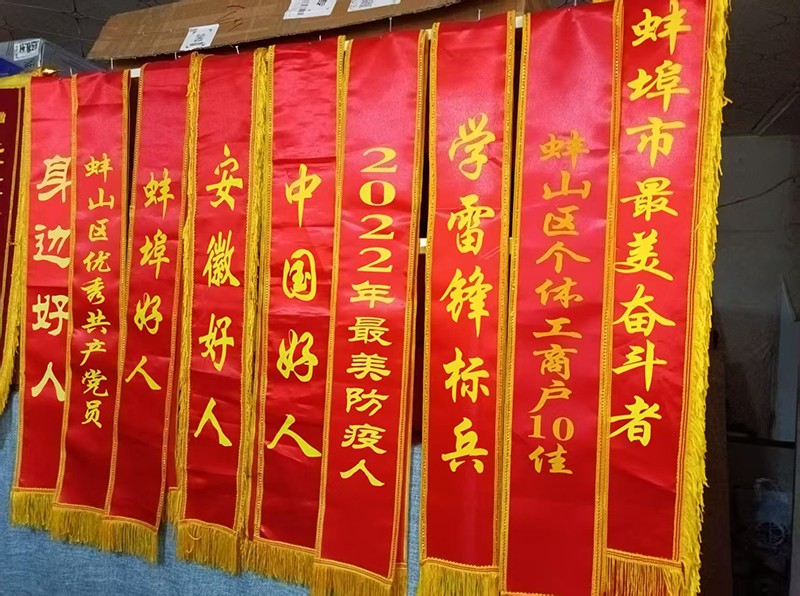 身边好人
蚌山区优秀共产党员
蚌埠好人
安徽好人
中国好人
2022年最美防疫人
学雷锋标兵
蚌山区个体工商户10佳
蚌埠市最美奋斗者